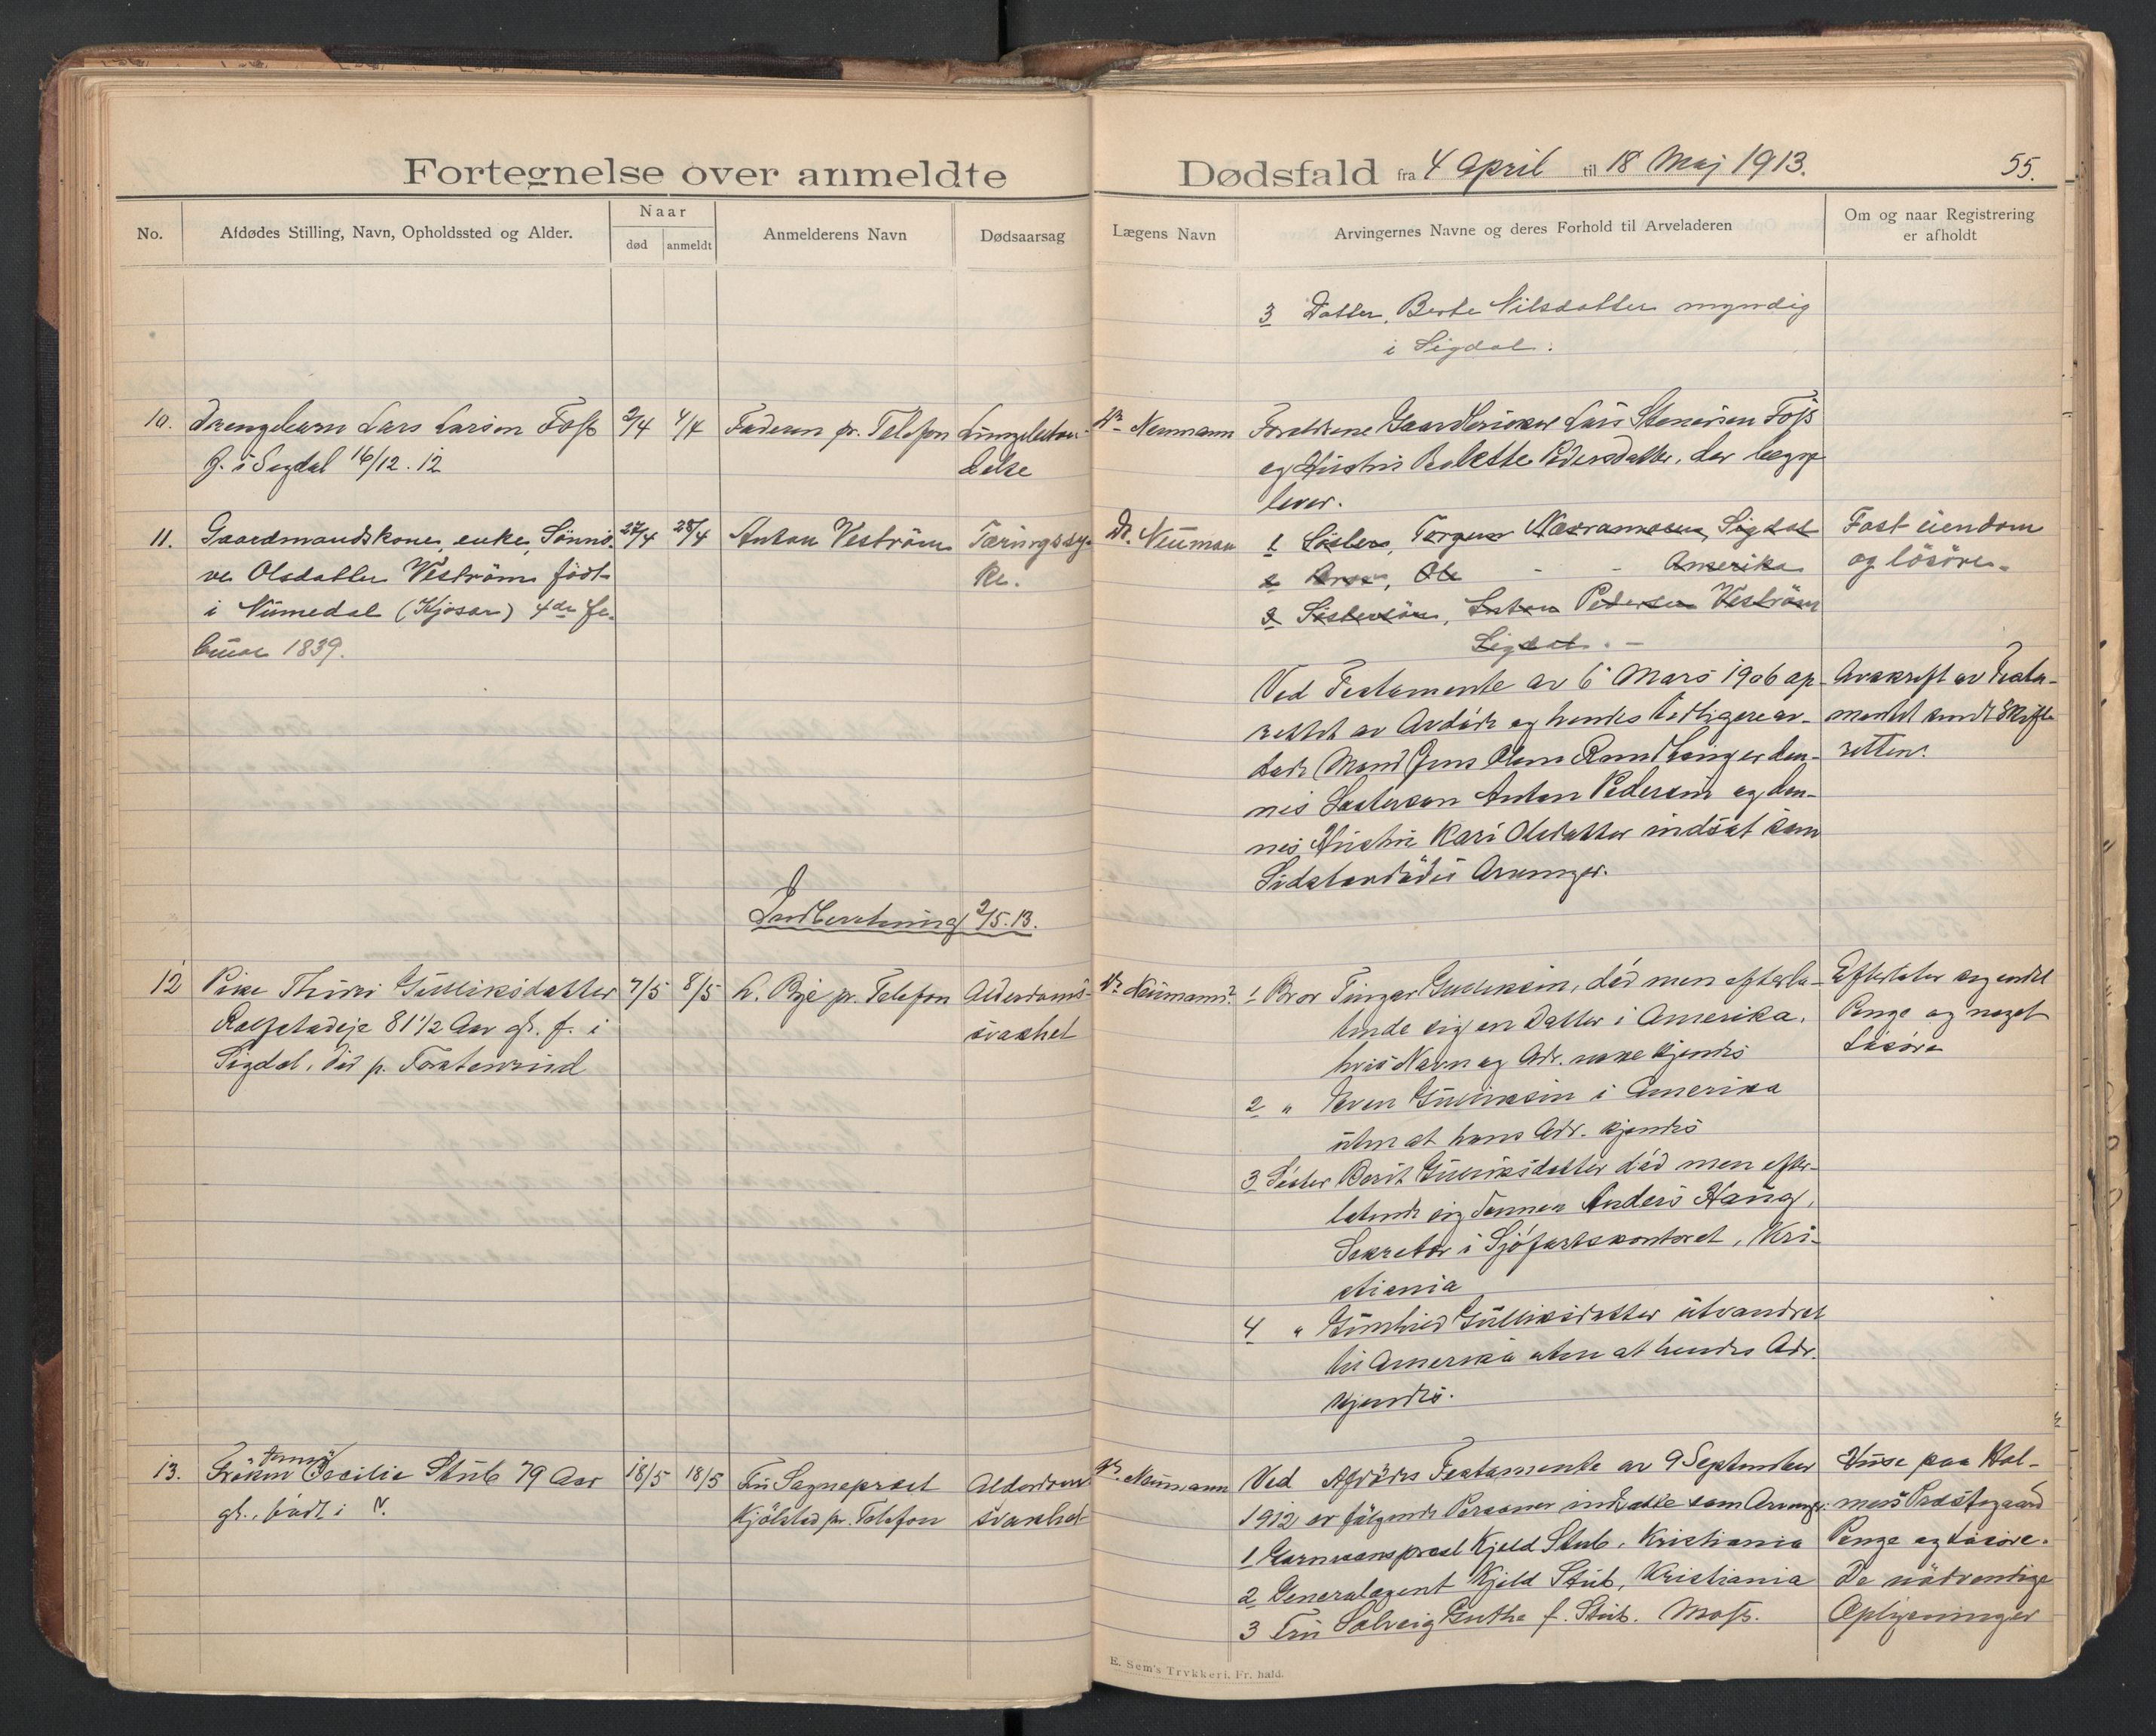 Fortegnelse over anmeldte
Dødsfald fra 4 April til 18 Maj 1913.
55.
No.
Afdødes Stilling, Navn, Opholdssted og Alder.
Naar
død
anmeldt
Anmelderens Navn
Dødsaarsag
Lægens Navn
Arvingernes Navne og deres Forhold til Arveladeren
Om og naar Registrering
er afholdt
3 Datter, Berte Nilsdatter myndig
i Sigdal.
10. Drengebarn Lars Larsen Foss
f. i Segdal 16/12.12
2/4
4/4
Faderen pr. Telefon
Lungebetæn-
delse
Dr Neumann
Forældrene Gaardbruker Lars Stenersen Foss
og Hustru Bolette Pedersdatter, der begge
lever.
11. Gaardmandskone, enke, Sønnø-
ve Olsdatter Veström født
i Numedal (Kjosar) 4de fe-
bruar 1839.
27/4
28/4
Anton Veström
Tæringssy-
ke.
Dr. Neuman
1 Söster, Torgun Sigdal
2 Bror, Ole - - Amerika
3 Söstersön, Anton Pedersen Veström
Sigdal. -
Fast eiendom
og lösöre.
Ved Testamente av 6 Mars 1906 op-
rettet av Avdöde og hendes tidligere av-
døde Mand Jens Olsen er den-
nes Søstersøn Anton Pedersen og den-
nes Hustru Kari Olsdatter indsat som
Sidstavdødes Arvinger.
Avskrift av Testa-
mentet sendt Skifte
retten.
Indberetning 2/5.13.
12 Pike Thuri Gulliksdatter
81 1/2 Aar gl. f. i
Sigdal, død p. Torstensrud
7/5
8/5
A. Bye pr. Telefon
Alderdoms-
svakhet
Dr Neumann?
1 Bror Gulliksen, död men efterla-
tende sig en Datter i Amerika,
hvis Navn og Adr. ikke kjendes
2 " Even Gulliksen i Amerika
uten at hans Adr. kjendes
3 Söster Berit Gulliksdatter död men efter-
latende sig Sönnen Anders Haug,
Sekretær i Sjöfartskontoret, Kri-
stiania
4 " Gunhild Gulliksdatter utvandret
til Amerika uten at hendes Adr.
kjendes.
Efterlater sig endel
Penge og noget
Lösöre
13. Fröken Cecilie Stub 79 Aar
gl., födt i V.
18/5
18/5
Fru Sogneprest
Kjölstad pr. Telefon
Alderdoms-
svakhet
Dr. Neumann
Ved Afdödes Testamente av 9 September
1912 er fölgende Personer indsatte som Arvinger.
1 Garnisonsprest Kjeld Stub, Kristiania
2 Generalagent Kjeld Stub, Kristiania
3 Fru Solveig Guthe f. Stub. Moss.
Huse paa Hol-
mens Præstegaard
Penge og Lösöre.
De nödvendige
Oplysninger
E. Sem's Trykkeri, Fr. hald.